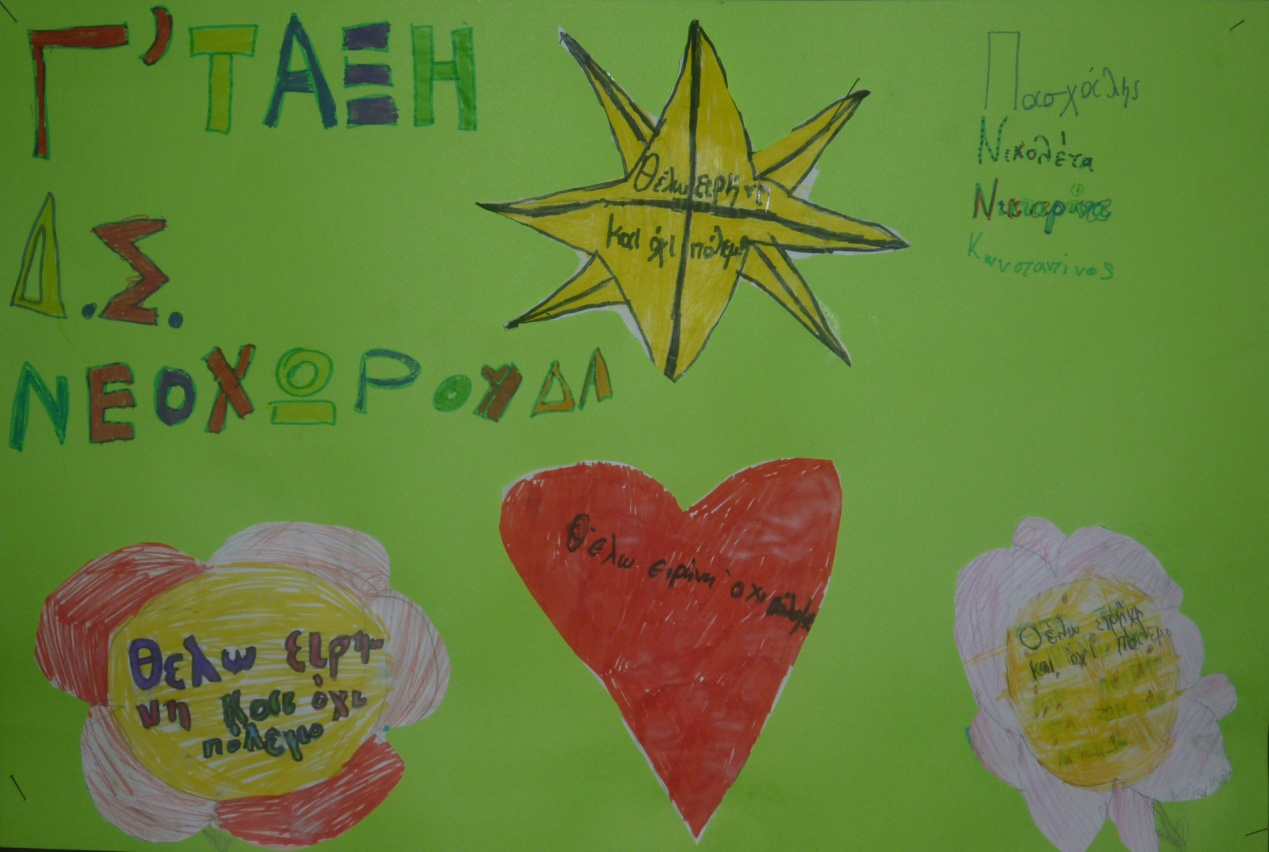 Γ' ΤΑΞΗ
Δ.Σ.
ΝΕΟΧΩΡΟΥΔΑ
Θέλω ειρήνη
και όχι πόλεμο
Πασχάλης
Νικολέτα
Νεκταρίος
Κωνσταντίνος
Θελω ειρη
νη και όχι
πόλεμο
Θέλω ειρήνη όχι πόλεμο
Θέλω ειρήνη
και όχι πόλεμο